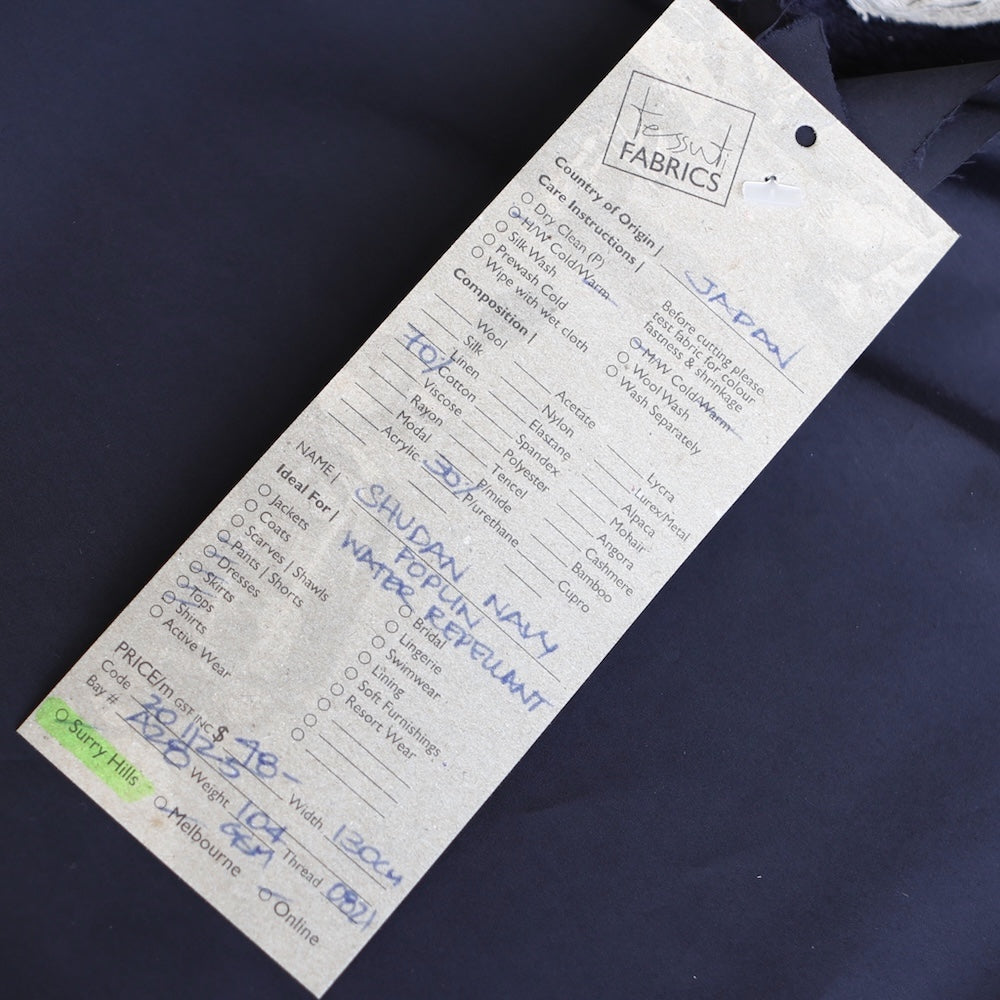 tessuti
FABRICS
Country of Origin | JAPAN
Care Instructions |
Dry Clean (P)
H/W Cold/Warm
Silk Wash
Prewash Cold
Wipe with wet cloth
Before cutting please
test fabric for colour
fastness & shrinkage
M/W Cold/Warm
Wool Wash
Wash Separately
Composition |
Wool
Silk
Linen
70% Cotton
Viscose
Rayon
Modal
Acrylic
Acetate
Nylon
Elastane
Spandex
Polyester
Tencel
P/mide
30% P/urethane
Lycra
Lurex/Metal
Alpaca
Mohair
Angora
Cashmere
Bamboo
Cupro
NAME | SHUDAN POPLIN NAVY
WATER REPELLANT
Ideal For |
Jackets
Coats
Scarves | Shawls
Pants | Shorts
Dresses
Skirts
Tops
Shirts
Active Wear
Bridal
Lingerie
Swimwear
Lining
Soft Furnishings
Resort Wear
PRICE/m GST INC $ 48-
Width 130cm
Code 20 1125
Weight 104 GSM
Thread 0821
Bay # A28
Surry Hills
Melbourne
Online